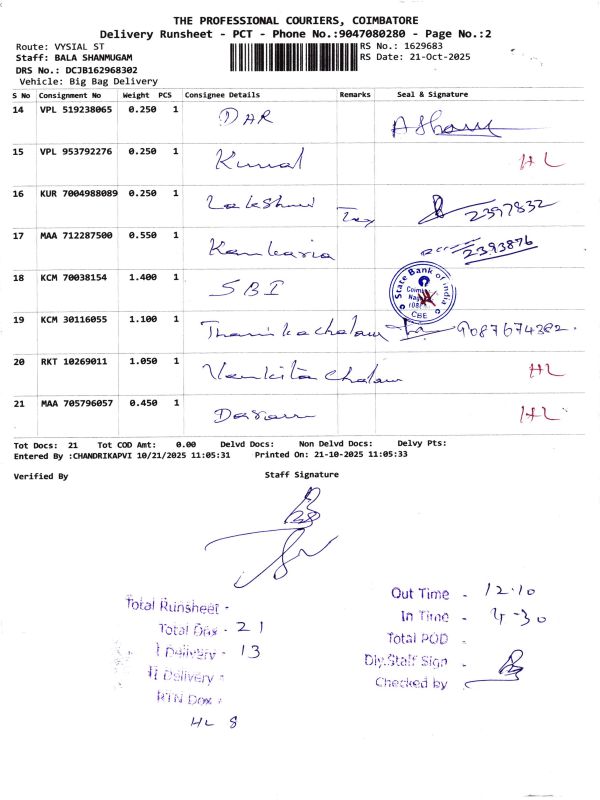 THE PROFESSIONAL COURIERS, COIMBATORE
Delivery Runsheet - PCT - Phone No.:9047080280 - Page No.:2
Route: VYSIAL ST
RS No.: 1629683
Staff: BALA SHANMUGAM
RS Date: 21-Oct-2025
DRS No.: DCJB162968302
Vehicle: Big Bag Delivery
S No Consignment No Weight PCS Consignee Details Remarks Seal & Signature
14 VPL 519238065 0.250 1 DAR
15 VPL 953792276 0.250 1 Kunal HL
16 KUR 7004988089 0.250 1 Lakshmi 2397832
17 MAA 712287500 0.550 1 Kankaria 2393876
18 KCM 70038154 1.400 1 SBI
State Bank of India
CBE
19 KCM 30116055 1.100 1 Thanikachalam 9087674382.
20 RKT 10269011 1.050 1 Venkitachalam HL
21 MAA 705796057 0.450 1 HL
Tot Docs: 21 Tot COD Amt: 0.00 Delvd Docs: Non Delvd Docs: Delvy Pts:
Entered By :CHANDRIKAPVI 10/21/2025 11:05:31 Printed On: 21-10-2025 11:05:33
Verified By Staff Signature
Total Runsheet -
Total Dox - 21
I Delivery - 13
II Delivery -
RTN Dox -
HL 8
Out Time - 12.10
In Time - 4-30
Total POD -
Dly.Staff Sign -
Checked by